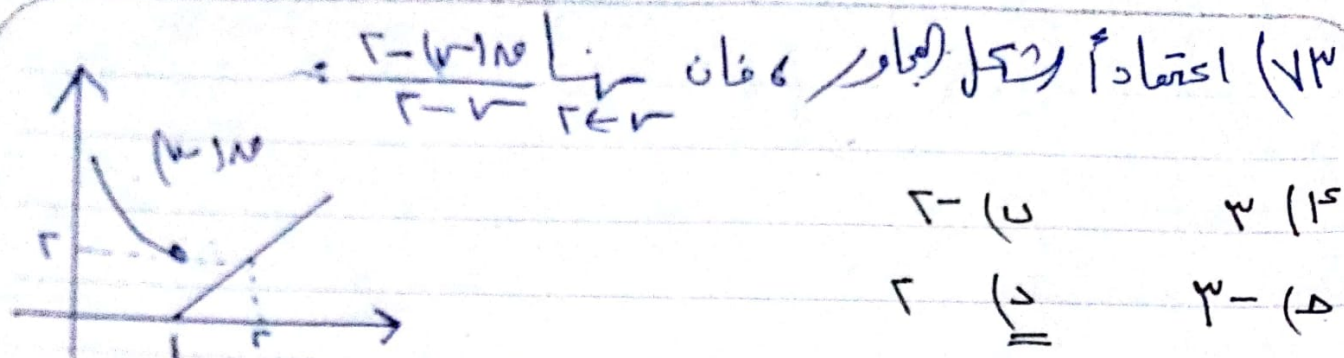 ٧٣) اعتماداً الشكل المجاور ، فان نهــا ق(س)-٢ / س-٢ =
س←٢
أ) ٣ ب) -٢
ج) -٣ د) ٢
ق(س)
٢
١ ٢